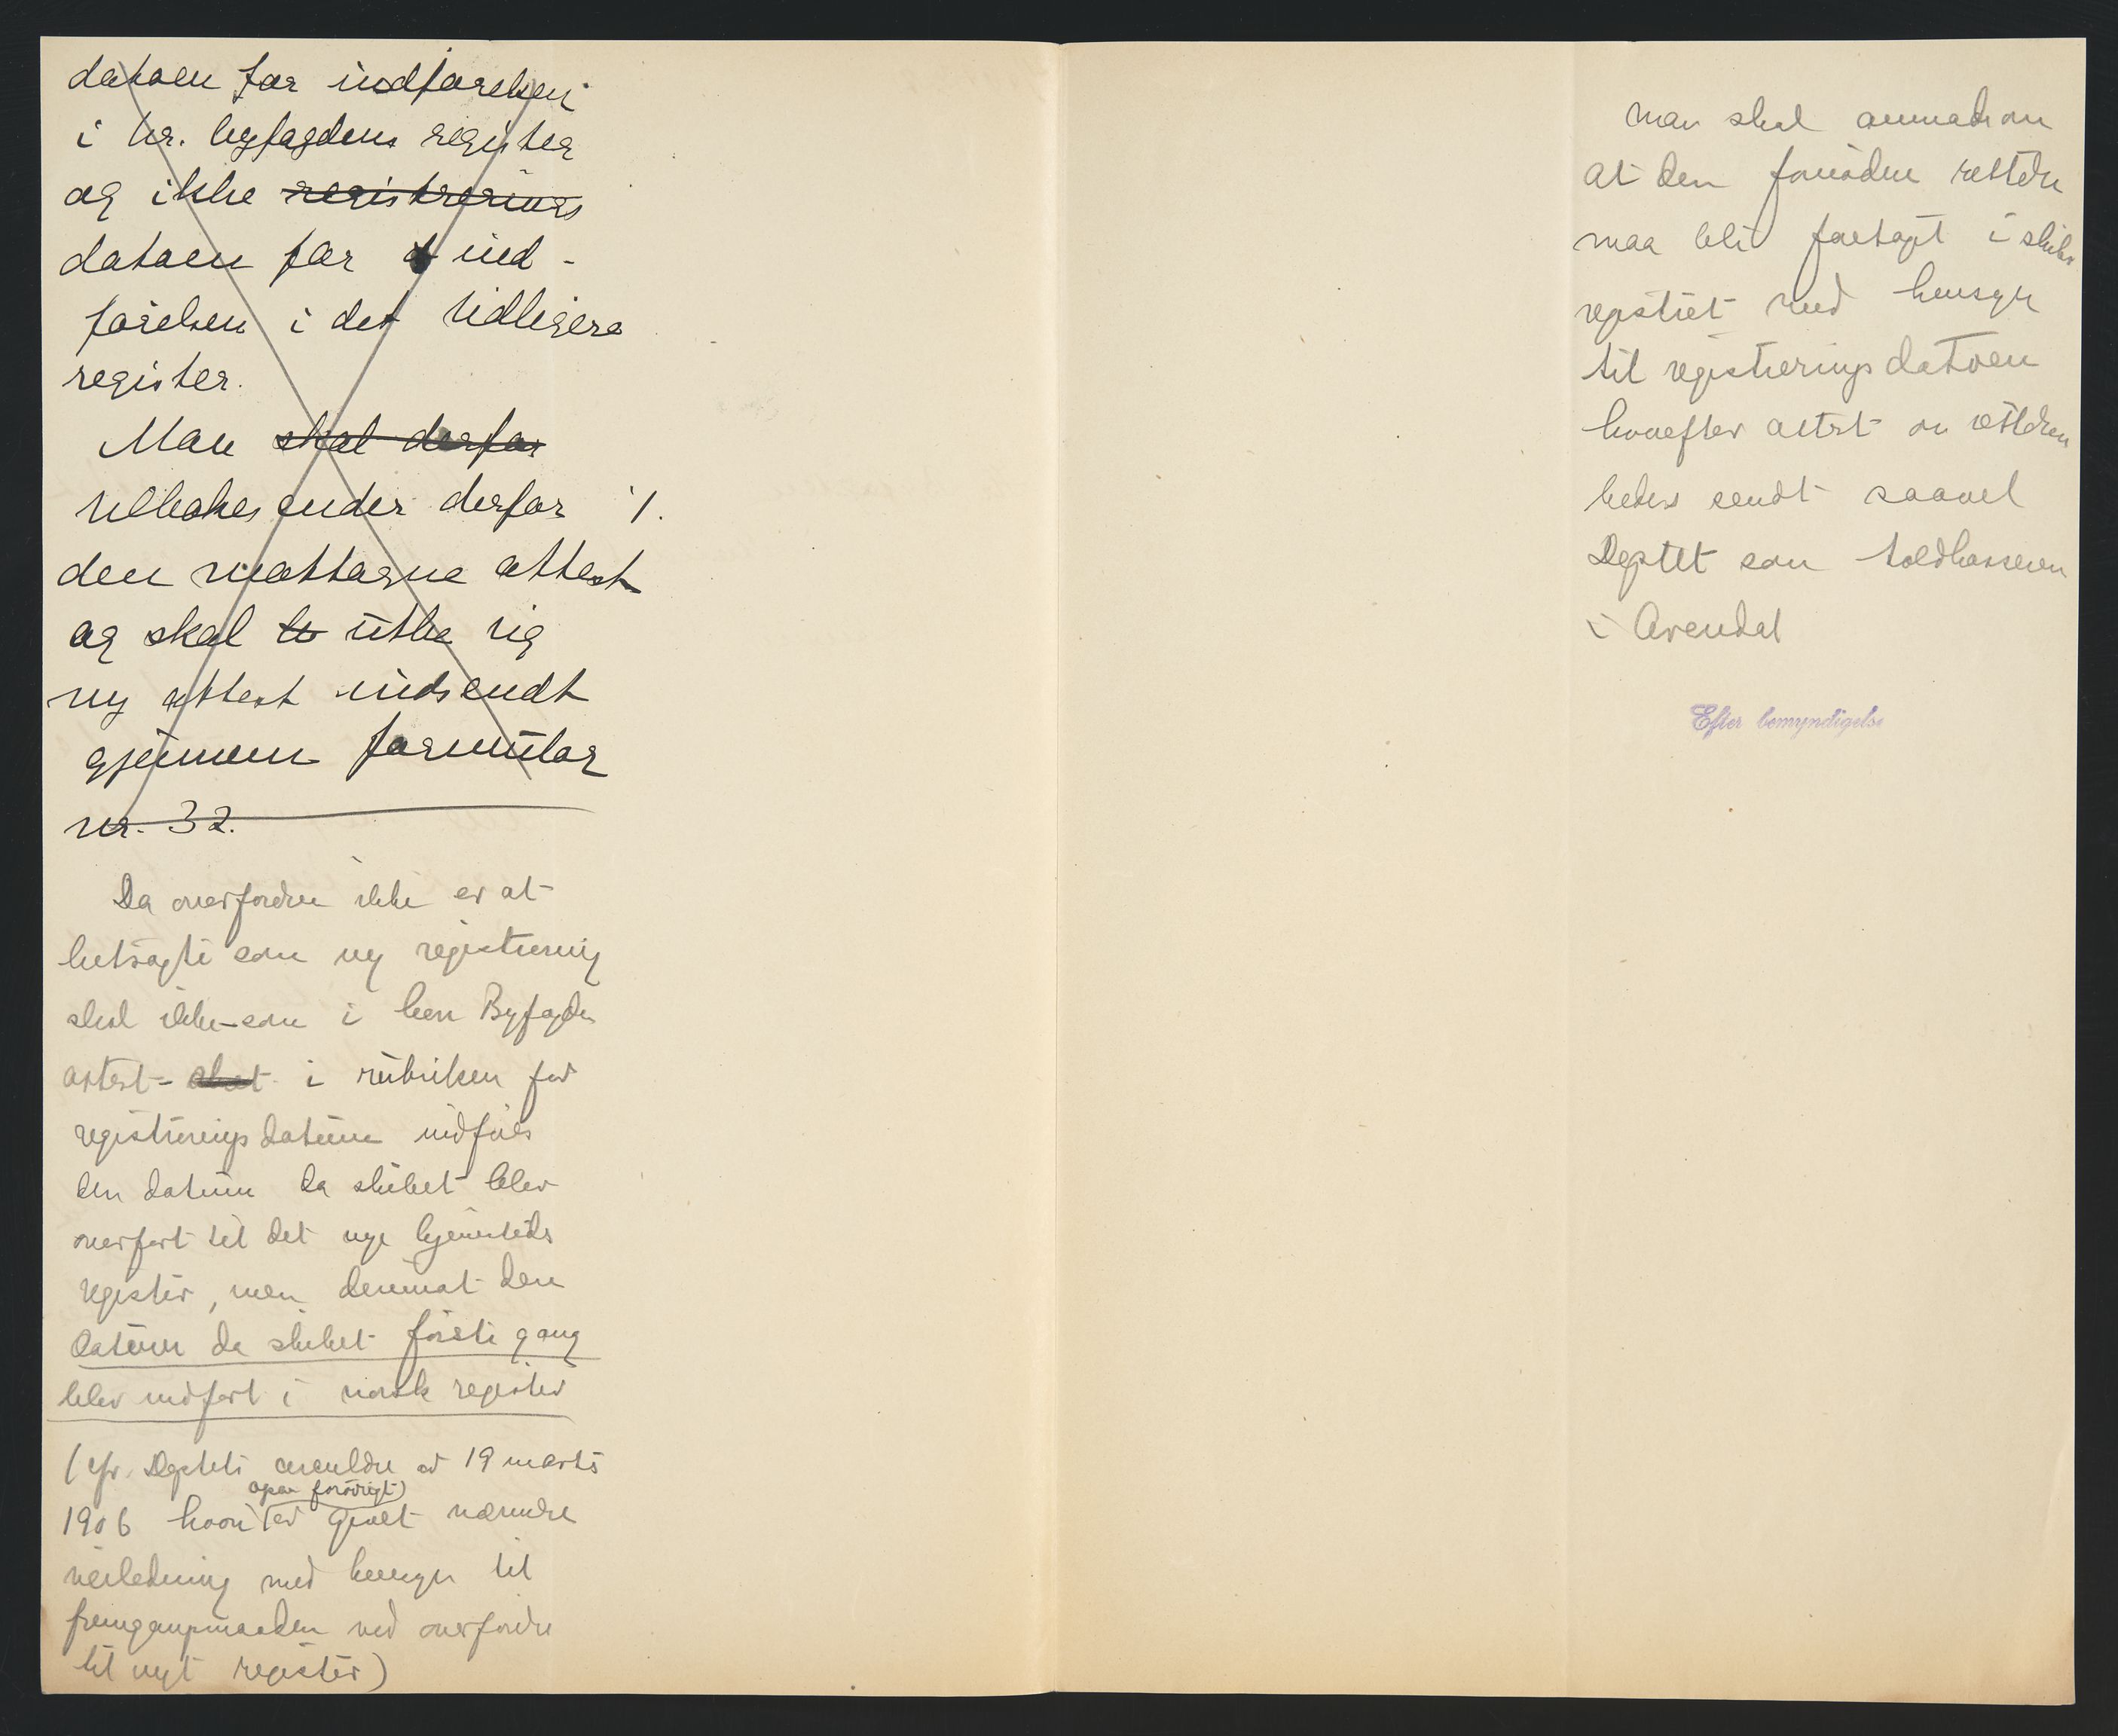 datoen for indførelsen
i hr. byfogdens register
og ikke registrerings
datoen for d ind-
førelsen i det tidligere
register.
Man skal derfor
tilbakesender derfor 1.
den mottagne attest
og skal to utbe sig
ny attest indsendt
gjennem formular
nr. 32.
Da overføringen ikke er at
betragte som ny registrering
skal ikke – som i herr Byfogdens
attest – skal i rubriken for
registreringsdatum indføres
den datum da skibet blev
overført til det nye hjemsteds
register, men derimot den
datum da skibet første gang
blev indført i norsk register
(cfr. Deptets circulære av 19 marts
1906 hvori (ogsaa forøvrigt) er givet nærmere
veiledning med hensyn til
fremgangsmaaden ved overføring
til nyt register)
Man skal anmode om
at den fornødne rettelse
maa bli foretaget i skibs
registret med hensyn
til registreringsdatoen
hvorefter attest om rettelsen
bedes sendt saavel
Deptet som toldkassereren
i Arendal
Efter bemyndigelse